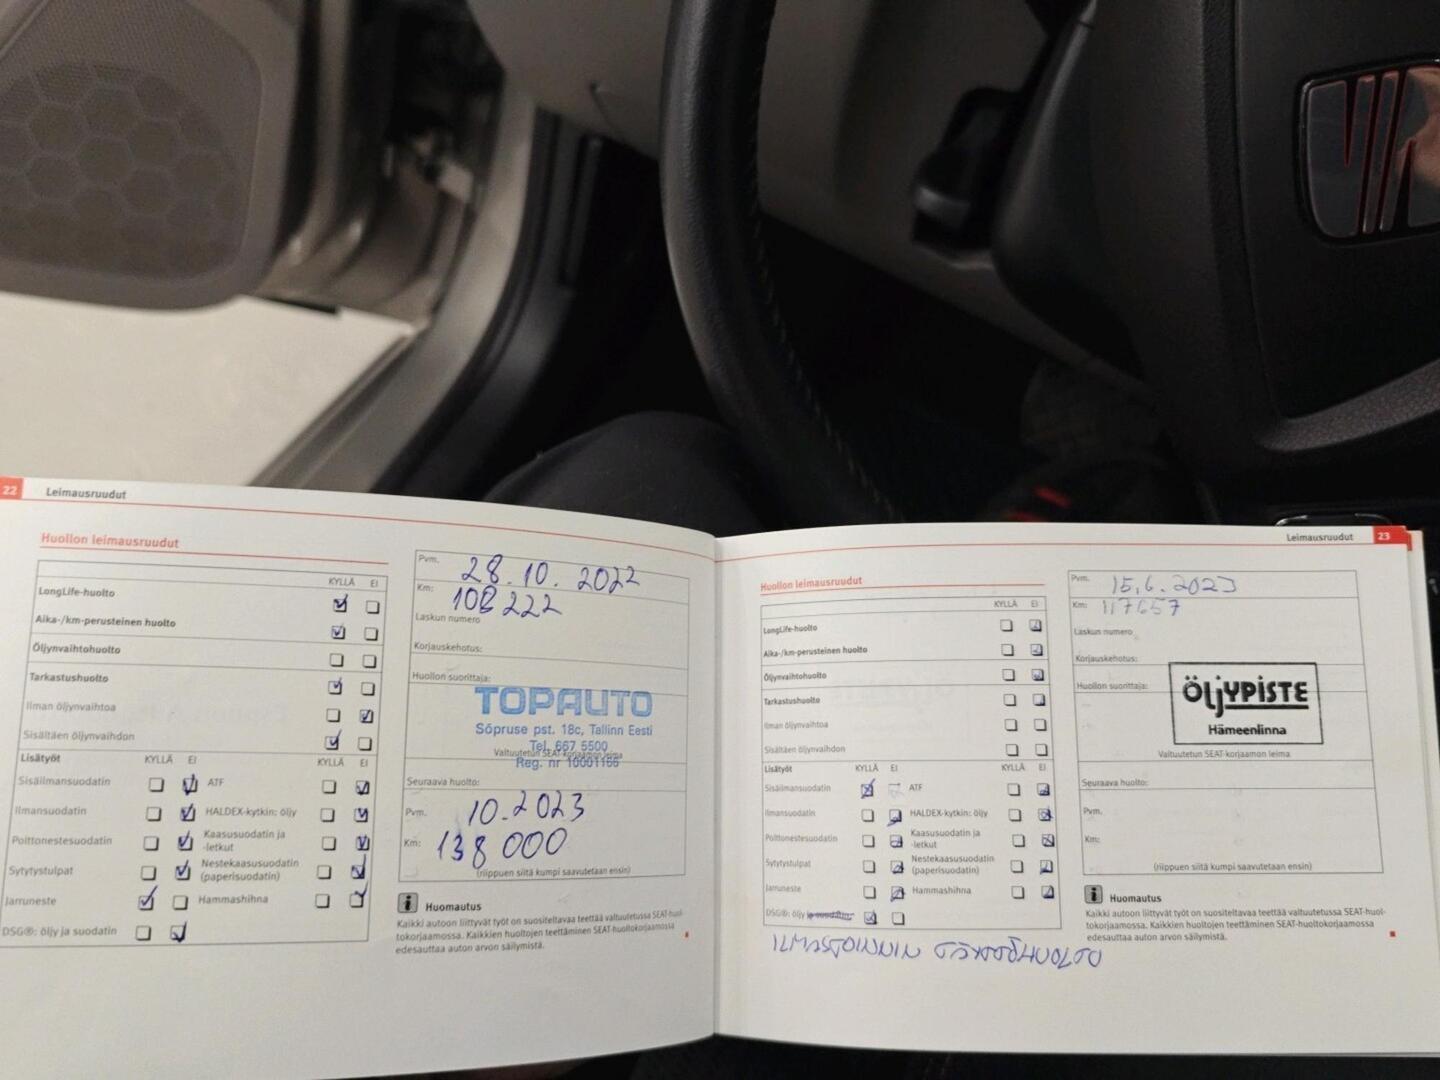 22 Leimausruudut
Huollon leimausruudut
KYLLÄ EI
LongLife-huolto
Aika-/km-perusteinen huolto
Öljynvaihtohuolto
Tarkastushuolto
Ilman öljynvaihtoa
Sisältäen öljynvaihdon
Lisätyöt KYLLÄ EI KYLLÄ EI
Sisäilmansuodatin ATF
Ilmansuodatin HALDEX-kytkin: öljy
Polttonestesuodatin Kaasusuodatin ja
-letkut
Sytytystulpat Nestekaasusuodatin
(paperisuodatin)
Jarruneste Hammashihna
DSG®: öljy ja suodatin
Pvm. 28.10.2022
Km: 108 222
Laskun numero
Korjauskehotus:
Huollon suorittaja:
TOPAUTO
Sõpruse pst. 18c, Tallinn Eesti
Tel. 667 5500
Valtuutetun SEAT-korjaamon leima
Reg. nr 10001166
Seuraava huolto:
Pvm. 10.2023
Km: 138 000
(riippuen siitä kumpi saavutetaan ensin)
i Huomautus
Kaikki autoon liittyvät työt on suositeltavaa teettää valtuutetussa SEAT-huol-
tokorjaamossa. Kaikkien huoltojen teettäminen SEAT-huoltokorjaamossa
edesauttaa auton arvon säilymistä.
Leimausruudut 23
Huollon leimausruudut
KYLLÄ EI
LongLife-huolto
Aika-/km-perusteinen huolto
Öljynvaihtohuolto
Tarkastushuolto
Ilman öljynvaihtoa
Sisältäen öljynvaihdon
Lisätyöt KYLLÄ EI KYLLÄ EI
Sisäilmansuodatin ATF
Ilmansuodatin HALDEX-kytkin: öljy
Polttonestesuodatin Kaasusuodatin ja
-letkut
Sytytystulpat Nestekaasusuodatin
(paperisuodatin)
Jarruneste Hammashihna
DSG®: öljy ja suodatin
ILMASTOINNIN
Pvm. 15.6.2023
Km: 117657
Laskun numero
Korjauskehotus:
Huollon suorittaja:
ÖLJYPISTE
Hämeenlinna
Valtuutetun SEAT-korjaamon leima
Seuraava huolto:
Pvm.
Km:
(riippuen siitä kumpi saavutetaan ensin)
i Huomautus
Kaikki autoon liittyvät työt on suositeltavaa teettää valtuutetussa SEAT-huol-
tokorjaamossa. Kaikkien huoltojen teettäminen SEAT-huoltokorjaamossa
edesauttaa auton arvon säilymistä.